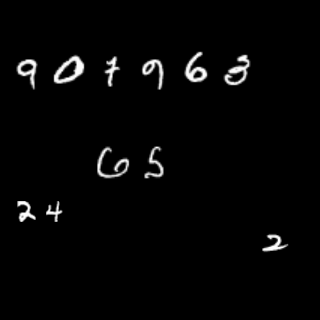 907963
65
24
2